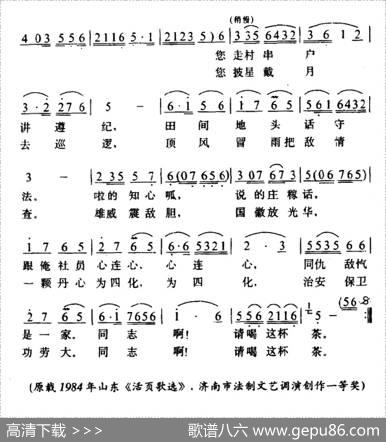 (稍慢)
4 03 5 5 6 | 2116 5·1 | 2123 5) 6 | 3 35 6432 | 3 6 1 2 |
您走村串户
您披星戴月
3·2 2 7 6 | 5 - | 6·1 5 6 | 1 7 6 5 | 5 6 1 6432 |
讲遵纪, 田间地头话守
去巡逻, 顶风冒雨把敌情
3 - | 2 35 5 7 | 6 (07 65 6) | 3 07 6 7 3 | 5 (06 765) |
法。 啦的知心呱, 说的庄稼话,
查。 雄威震敌胆, 国徽放光华,
1 7 6 5 | 2 7 6 5 | 6·6 5321 | 2 · 3 | 5535 6 6 |
跟俺社员心连心,心连心, 同仇敌忾
一颗丹心为四化,为四化, 治安保卫
(56
2 7 6 5 | 6·1 7656 | 1 6 1 | 5 5 6 2116 | 5 - ‖
是一家。同志啊! 请喝这杯茶。
功劳大。同志啊! 请喝这杯茶。
(原载1984年山东《活页歌选》,济南市法制文艺调演创作一等奖)
高清下载 >>>
歌谱八六 www.gepu86.com